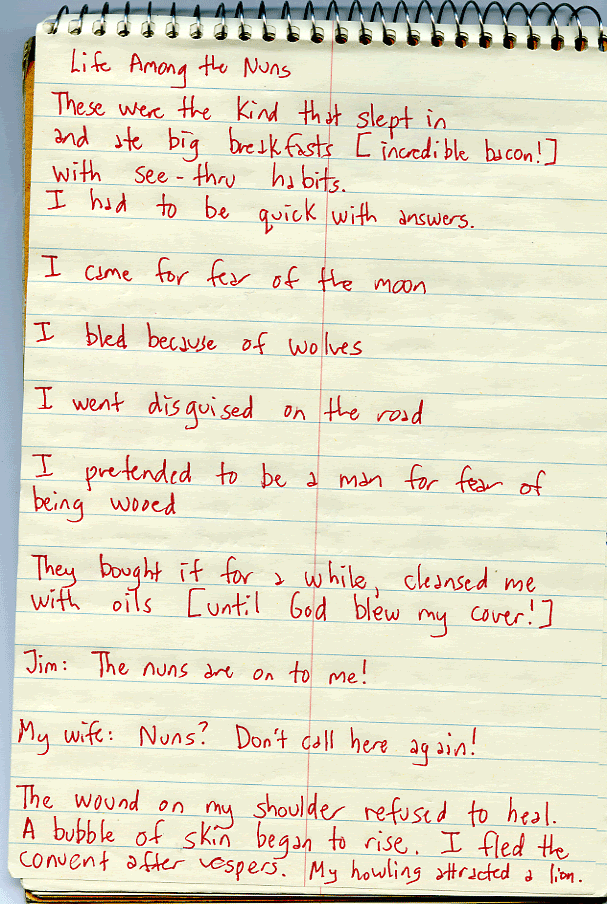 Life Among the Nuns
These were the kind that slept in
and ate big breakfasts [incredible bacon!]
with see-thru habits.
I had to be quick with answers.
I came for fear of the moon
I bled because of wolves
I went disguised on the road
I pretended to be a man for fear of
being wooed
They bought it for a while, cleansed me
with oils [until God blew my cover!]
Jim: The nuns are on to me!
My wife: Nuns? Don't call here again!
The wound on my shoulder refused to heal.
A bubble of skin began to rise. I fled the
convent after vespers. My howling attracted a lion.